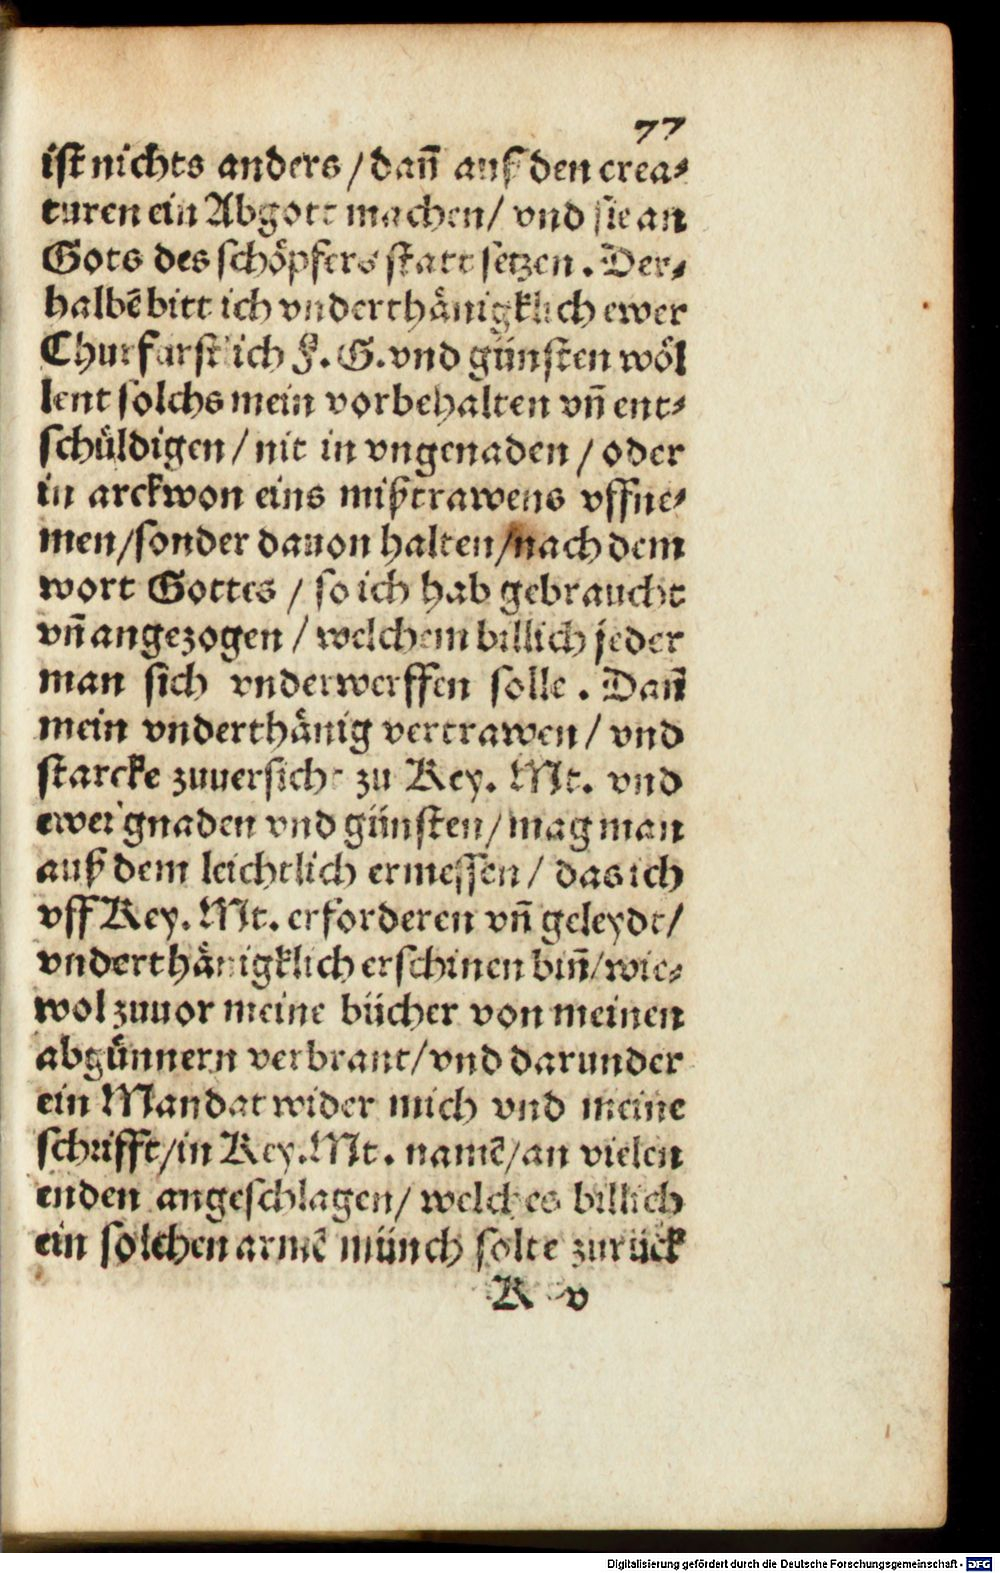 77
ist nichts anders / dañ auß den crea⸗
turen ein Abgott machen / vnd sie an
Gots des schöpfers statt setzen . Der⸗
halbē bitt ich vnderthänigklich ewer
Churfürstlich F. G. vnd günsten wöl
lent solchs mein vorbehalten vñ ent⸗
schüldigen / nit in vngenaden / oder
in arckwon eins mißtrawens vffne⸗
men / sonder dauon halten / nach dem
wort Gottes / so ich hab gebraucht
vñ angezogen / welchem billich jeder
man sich vnderwerffen solle . Dañ
mein vnderthänig vertrawen / vnd
starcke zuuersicht zu Key. Mt. vnd
ewer gnaden vnd günsten / mag man
auß dem leichtlich ermessen / das ich
vff Key. Mt. erforderen vñ geleydt /
vnderthänigklich erschinen biñ / wie⸗
wol zuuor meine bücher von meinen
abgünnern verbrant / vnd darunder
ein Mandat wider mich vnd meine
schrifft / in Key. Mt. namē / an vielen
enden angeschlagen / welches billich
ein solchen armē münch solte zurück
K v
Digitalisierung gefördert durch die Deutsche Forschungsgemeinschaft - DFG